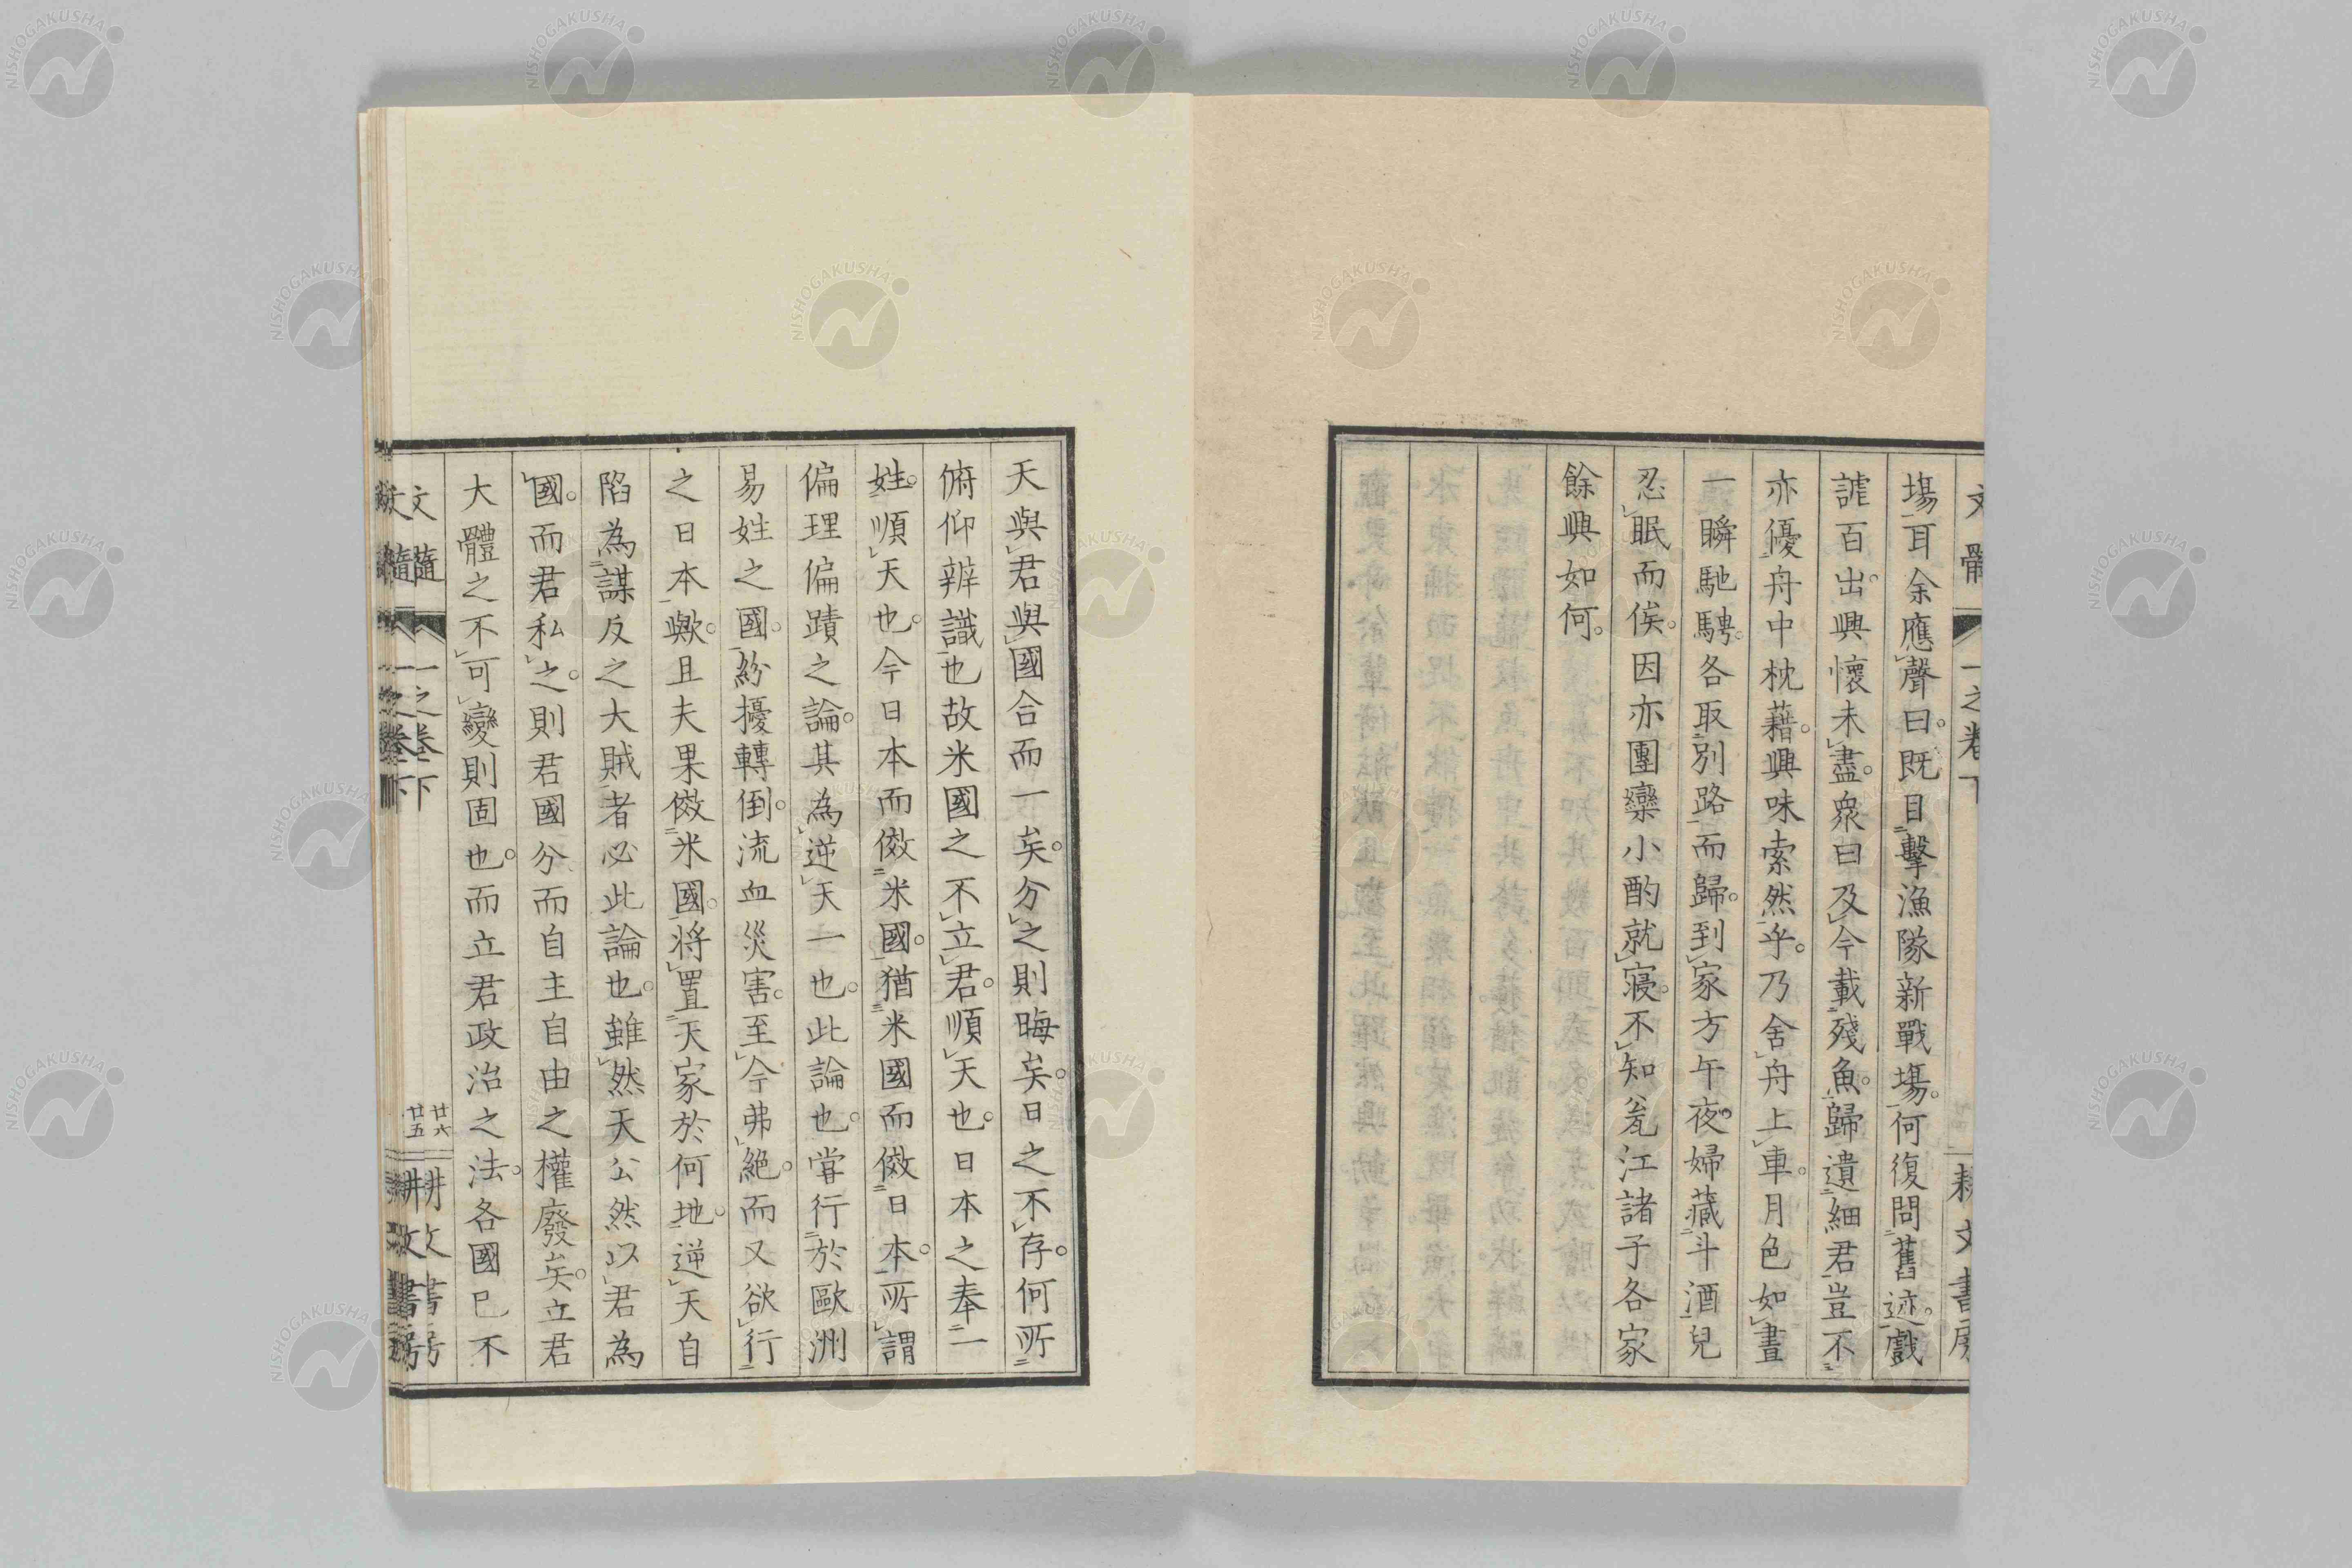 塲耳余應聲曰。既目擊漁隊新戰塲。何復問舊迹。戲
謔百出。興懷未盡。衆曰及今載殘魚。歸遺細君豈不
亦優舟中枕藉。興味索然乎。乃舍舟上車。月色如晝
一瞬馳騁。各取別路而歸。到家方午夜。婦藏斗酒兒
忍眠而俟。因亦團欒小酌就寢。不知瓮江諸子各家
餘興如何。
天與君與國合而一矣。分之則晦矣。日之不存。何所
俯仰辨識也故米國之不立君。順天也。日本之奉一
姓。順天也。今日本而傚米國。猶米國而傚日本。所謂
偏理偏蹟之論。其為逆天一也。此論也。甞行於歐洲
易姓之國。紛擾轉倒。流血災害。至今弗絶。而又欲行
之日本歟。且夫果傚米國。将置天家於何地。逆天自
陷為謀反之大賊者必此論也。雖然天公然以君為
國。而君私之。則君國分而自主自由之權廢矣。立君
大體之不可變則固也。而立君政治之法。各國已不
文隨 一之卷下 廿六 耕文書房
NISHOGAKUSHA